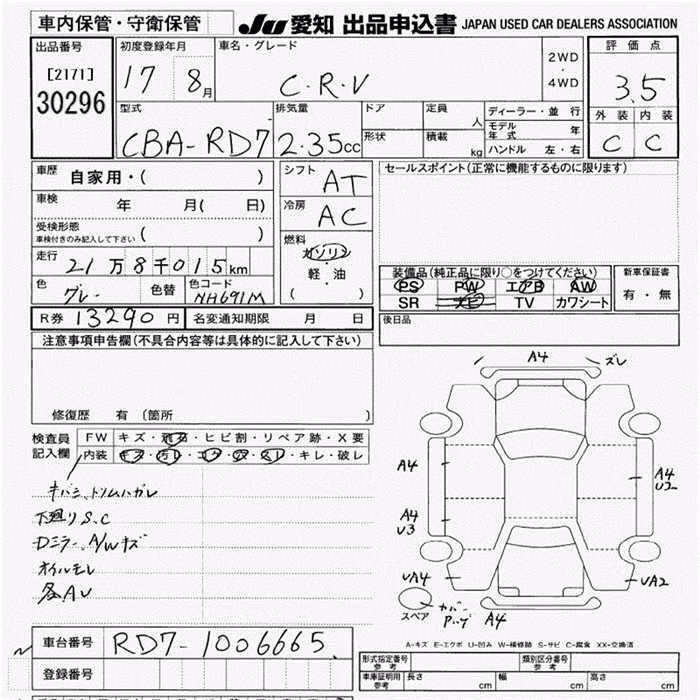 車内保管・守衛保管
JU 愛知 出品申込書 JAPAN USED CAR DEALERS ASSOCIATION
出品番号
[2171]
30296
初度登録年月
17 8月
車名・グレード
C.R.V
2WD
・
4WD
評価点
3.5
外装 内装
C C
型式
CBA-RD7
排気量
2.35cc
ドア
定員
人
形状
積載
kg
ディーラー・並行
モデル年式 年
ハンドル 左・右
車歴
自家用・( )
車検
年 月( 日)
受検形態
車検付きのみ記入して下さい ( )
走行
21万8千015km
色
グレー
色替
色コード
NH691M
シフト
AT
冷房
AC
燃料
ガソリン
・
軽・油
( )
セールスポイント(正常に機能するものに限ります)
装備品(純正品に限り○をつけてください)
PS PW エアB AW
SR ナビ TV カワシート
新車保証書
有・無
R券 13290円 名変通知期限 月 日
後日品
注意事項申告欄(不具合内容等は具体的に記入して下さい)
修復歴 有 (箇所 )
検査員
記入欄
FW キズ・飛石・ヒビ割・リペア跡・X要
内装 キズ・汚レ・コゲ・穴・スレ・キレ・破レ
キバミ、トリムハガレ
下廻りS.C
Dミラー、A/Wキズ
オイルモレ
各AU
A4 ズレ
A4
A4
U2
A4
U3
UA4
UA2
スペア
カバー
A4
A-キズ E-エクボ U-凹み W-補修跡 S-サビ C-腐食 XX-交換済
車台番号 RD7-1006665
登録番号
形式指定番号
参考
類別区分番号
参考
車庫証明用
参考
長さ cm 幅 cm 高さ cm